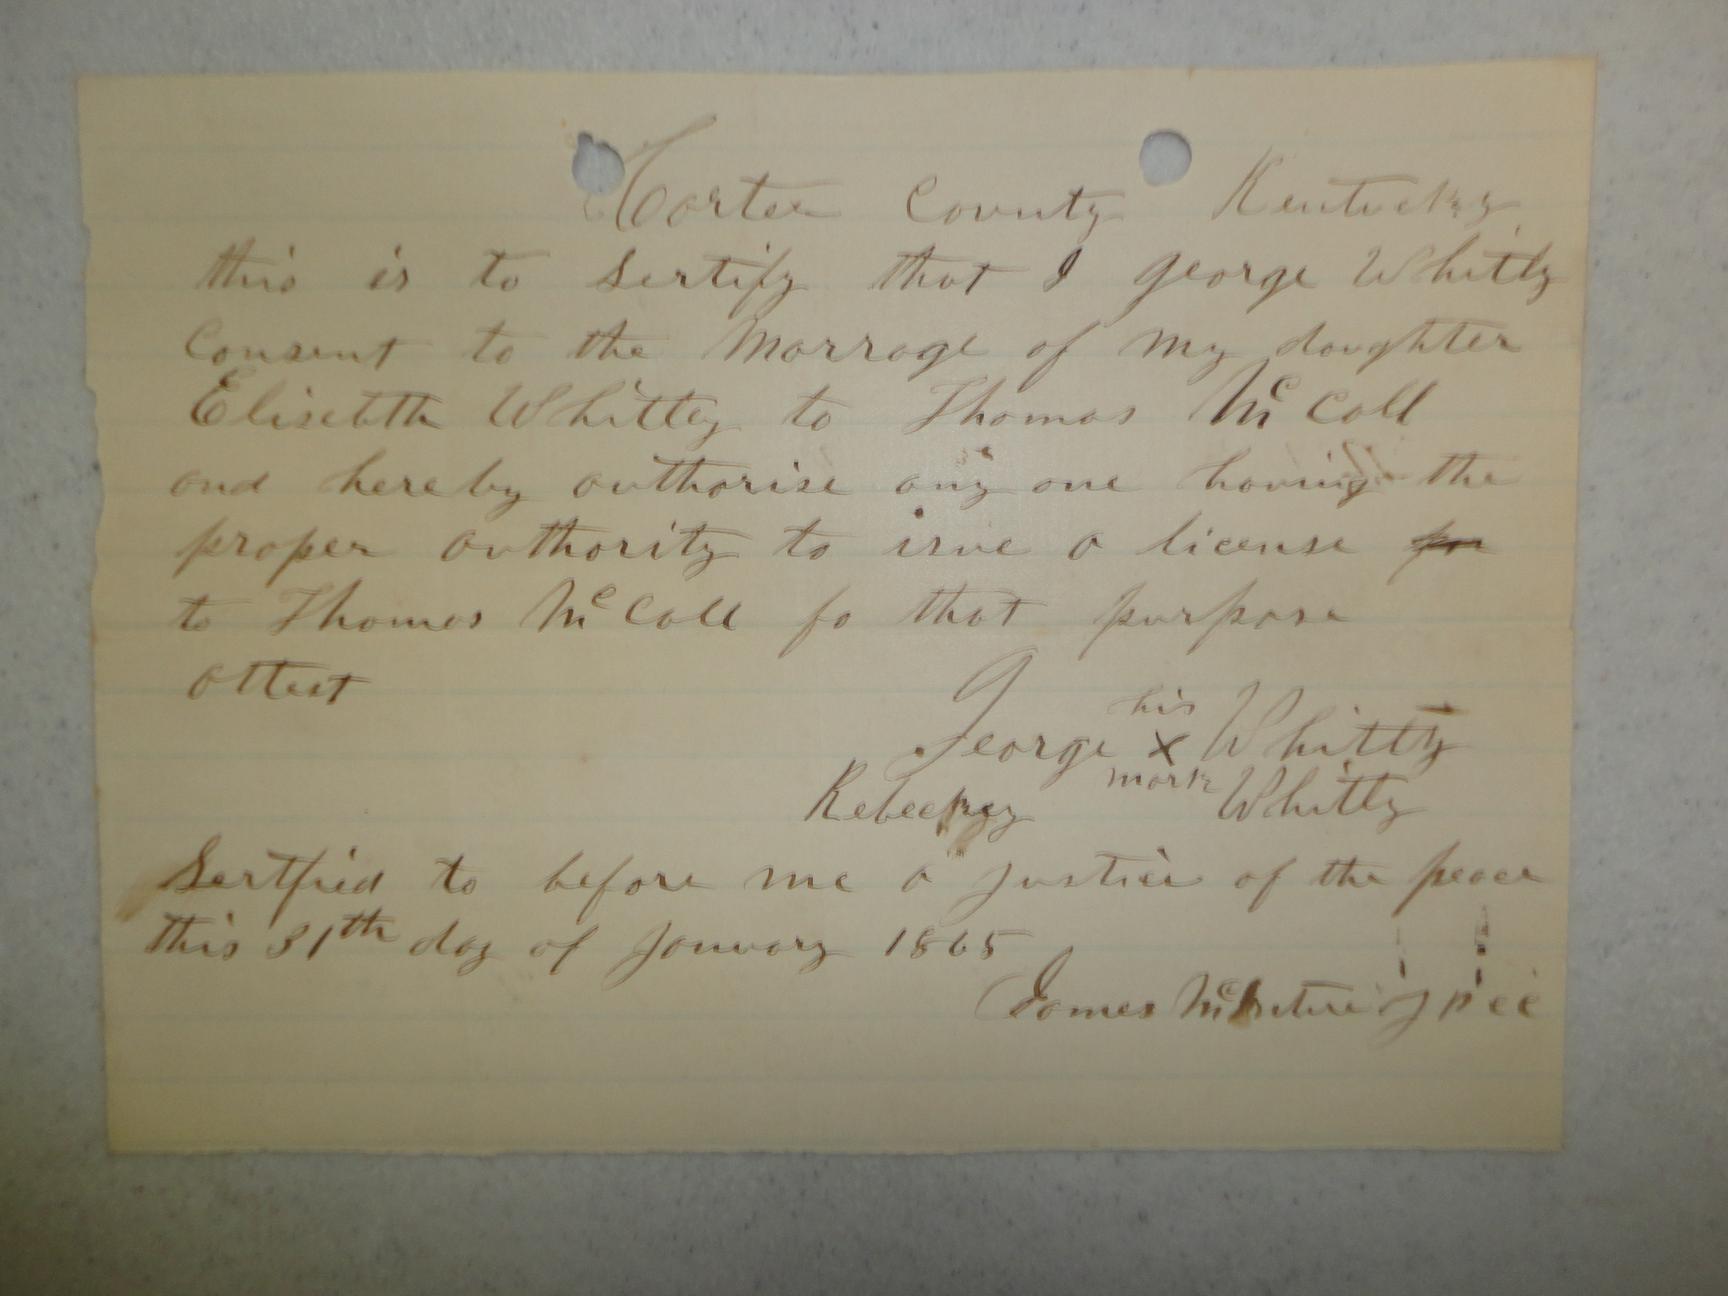 Carter County Kentucky
this is to Sertify that I George Whitly
Consent to the Marrage of my daughter
Elisebth Whitley to Thomas Mc Call
and hereby authorise any one having the
proper authority to isue a license for
to Thomas Mc Call fo that purpose
attest
his
George x Whitty
mark
Rebeckey Whitty
Sertfied to before me a justice of the peace
this 31th day of January 1865
James J P